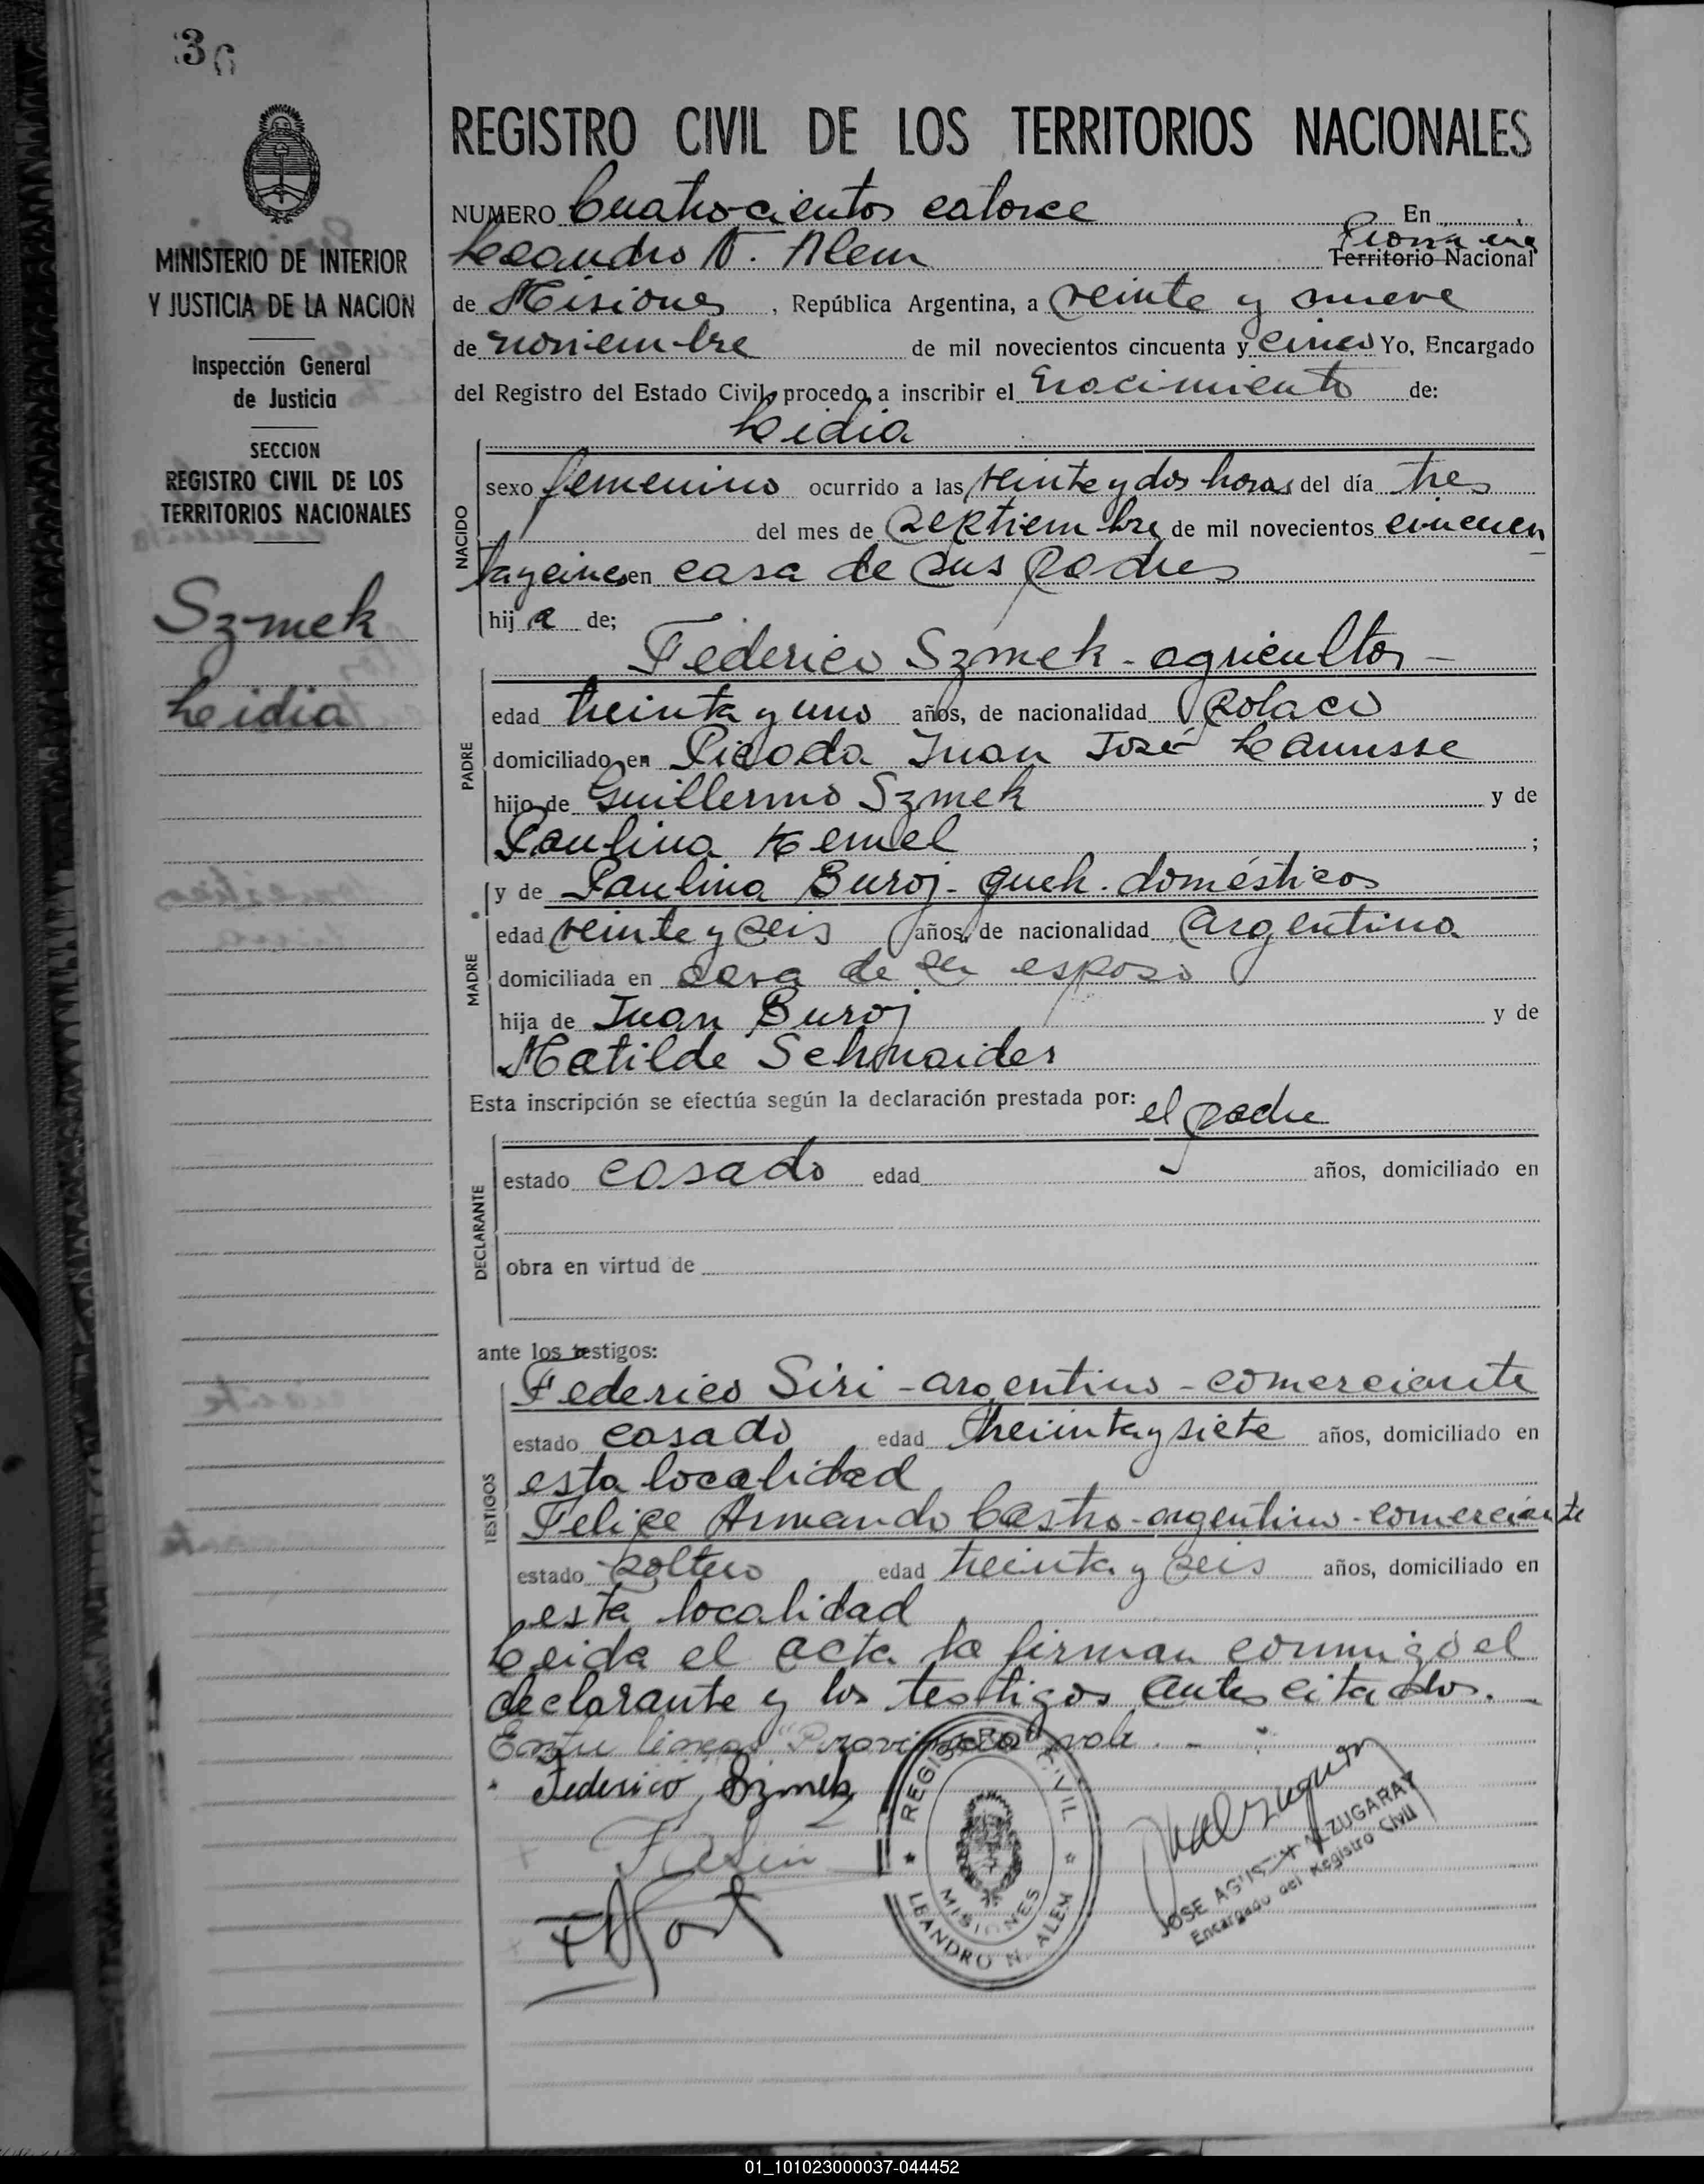 36
MINISTERIO DE INTERIOR
Y JUSTICIA DE LA NACION
Inspección General
de Justicia
SECCION
REGISTRO CIVIL DE LOS
TERRITORIOS NACIONALES
Szmek
Leidia
REGISTRO CIVIL DE LOS TERRITORIOS NACIONALES
NUMERO Cuatrocientos catorce En
Leandro N. Alem Provincia Territorio Nacional
de Misiones, República Argentina, a veinte y nueve
de noviembre de mil novecientos cincuenta y cinco Yo, Encargado
del Registro del Estado Civil, procedo a inscribir el nacimiento de:
Leidia
NACIDO
sexo femenino ocurrido a las veinte y dos horas del día tres
del mes de septiembre de mil novecientos cincuen
ta y cinco en casa de sus padres
hija de;
PADRE
Federico Szmek - agricultor -
edad treinta y uno años, de nacionalidad polaco
domiciliado en Picada Juan José Lanusse
hijo de Guillermo Szmek y de
Paulina Kemel ;
MADRE
y de Paulina Buroj - queh. domésticos
edad veinte y seis años, de nacionalidad argentina
domiciliada en casa de su esposo
hija de Juan Buroj y de
Matilde Schnaider
Esta inscripción se efectúa según la declaración prestada por: el padre
DECLARANTE
estado casado edad años, domiciliado en
obra en virtud de
ante los testigos:
TESTIGOS
Federico Siri - argentino - comerciante
estado casado edad treinta y siete años, domiciliado en
esta localidad
Felipe Armando Castro - argentino - comerciante
estado soltero edad treinta y seis años, domiciliado en
esta localidad
Leida el acta la firman conmigo el
declarante y los testigos antes citados.
Entre lineas "Provincia" vale. -
Federico Szmek
REGISTRO CIVIL
MISIONES
LEANDRO N. ALEM
JOSE AGUSTIN ALZUGARAY
Encargado del Registro Civil
01_101023000037-044452